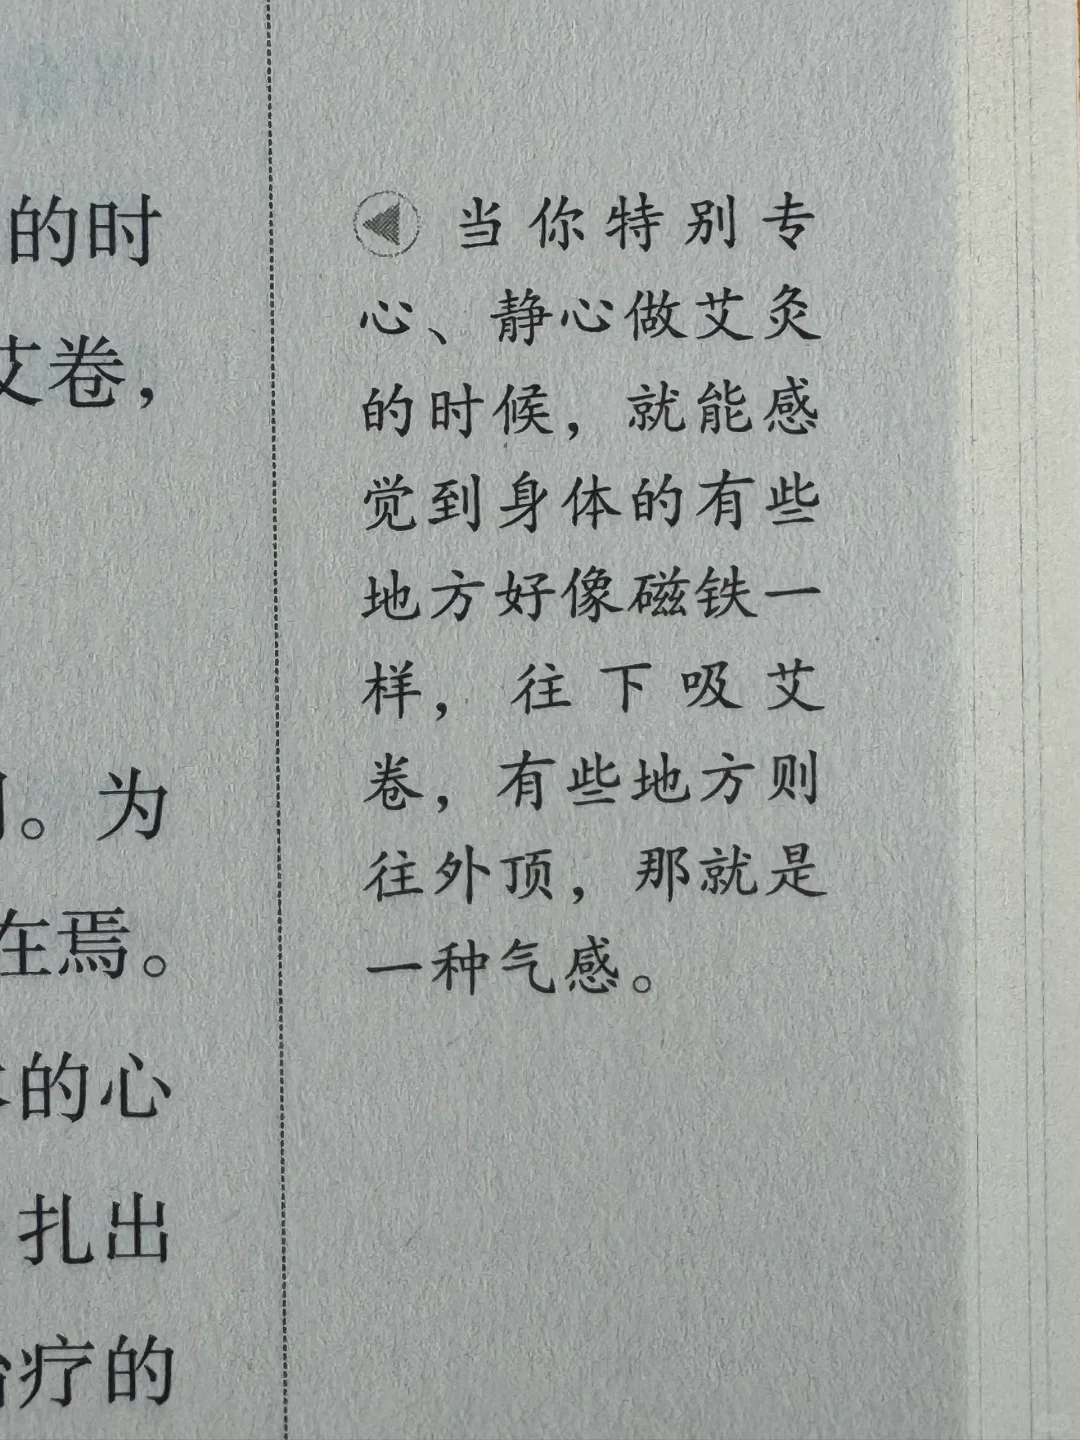 的时
艾卷，
。为
在焉。
的心
扎出
治疗的
当你特别专
心、静心做艾灸
的时候，就能感
觉到身体的有些
地方好像磁铁一
样，往下吸艾
卷，有些地方则
往外顶，那就是
一种气感。